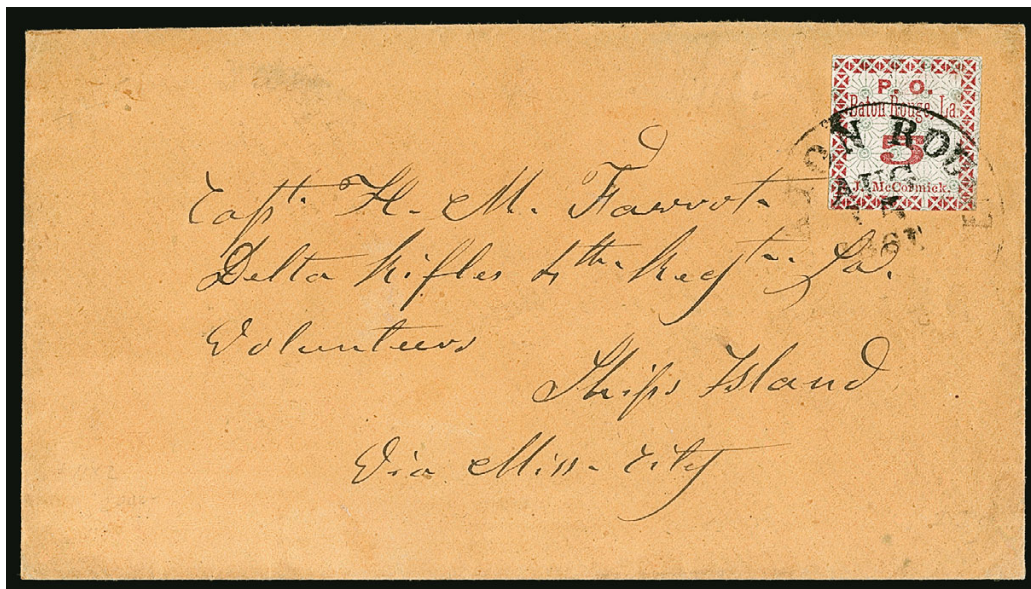 P. O.
Baton Rouge, La.
5
J. McCormick.
TON ROUGE
AUG
1861
Capt. H. M. Favrot.
Delta Rifles 4th Regt. La.
Volunteers
Ships Island
Via Miss. City